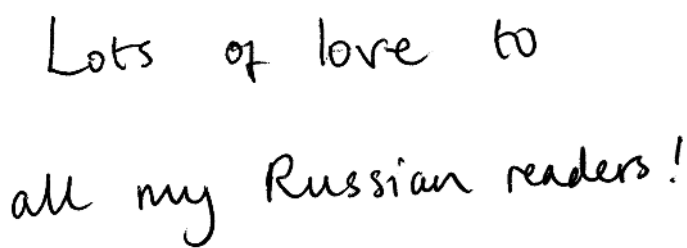 Lots of love to
all my Russian readers!